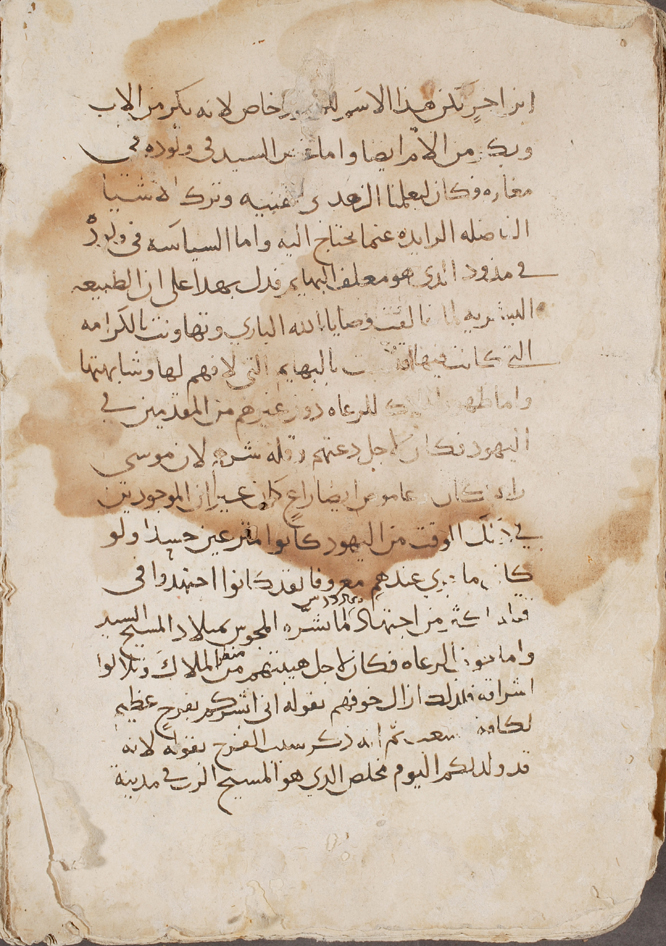 ابن اخر لكن هذا الاسم خاص لانه بكر من الاب
وبكر من الام ايضا واما السيد في ولوده في
مغاره فكان ليعلمنا الزهد وترك الاشيا
الفاضله الزايده عنما نحتاج اليه واما السياسه في ولوده
في مذود الذي هو معلف البهايم فدل بهذا على ان الطبيعه
البشريه لما خالفت وصايا الله الباري وتهاونت بالكرامه
التي كانت فيها بالبهايم التي لا فهم لها وشابهتها
واما ظهور للرعاه دون غيرهم من المقدمين في
اليهود فكان لاجل دعتهم وقله شرهم لان موسى
كان عاموص ايضا راعي كان غير ان الموجودين
في ذلك الوقت من اليهود كانوا حسدا ولو
كان ما عندهم معروفا لقد كانوا اجتهدوا في
اكثر من اجتهاد هيرودس لما بشره المجوس بميلاد المسيح السيد
واما الرعاه فكان لاجل هيبتهم من منظر الملاك وتلالوا
اشراقه فلذلك ازال خوفهم بقوله اني ابشركم بفرح عظيم
لكافه الشعب ثم انه ذكر سبب الفرح بقوله لانه
قد ولد لكم اليوم مخلص الذي هو المسيح الرب في مدينة